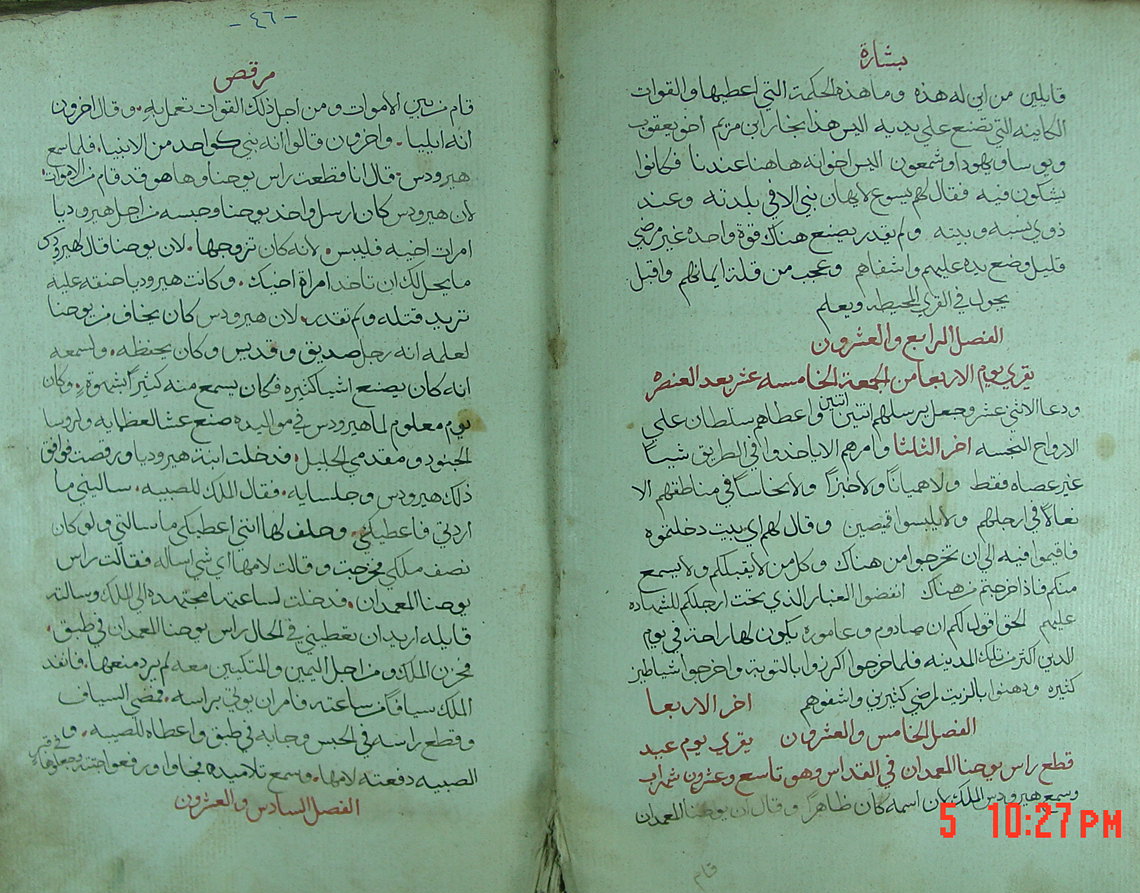 بشارة
قايلين من اين له هذه وما هذه الحكمة التي اعطيها والقوات
الكاينه التي تصنع علي يديه اليس هذا نجار ابن مريم اخو يعقوب
ويوسا ويهودا وشمعون اليس اخواته هاهنا عندنا فكانوا
يشكون فيه فقال لهم يسوع لا يهان نبي الا في بلدته وعند
ذوي نسبه وبيته ولم يقدر يصنع هناك قوة واحده غير مرضي
قليل وضع يده عليهم واشفاهم وعجب من قلة ايمانهم واقبل
يجول في القري المحيطه ويعلم
الفصل الرابع والعشرون
يقري يوم الاربعا من الجمعة الخامسه عشر بعد العنصره
ودعا الاثني عشر وجعل يرسلهم اتنين اتنين واعطاهم سلطان علي
الارواح النجسه اخر الثلثا وامرهم الا ياخذوا في الطريق شيياً
غير عصاه فقط ولا همياناً ولا خبزاً ولا نحاساً في مناطقهم الا
نعالاً في ارجلهم ولا يلبسوا قميصين وقال لهم اي بيت دخلتموه
فاقيموا فيه الي ان تخرجوا من هناك وكل من لا يقبلكم ولا يسمع
منكم فاذا خرجتم من هناك انفضوا الغبار الذي تحت ارجلكم للشهاده
عليهم الحق اقول لكم ان صادوم وعاموره يكون لها راحة في يوم
الدين اكثر من تلك المدينه فلما خرجوا اكرزوا بالتوبة واخرجوا شياطين
كثيره ودهنوا بالزيت لمرضي كثيرين واشفوهم اخر الاربعا
الفصل الخامس والعشرون يقري يوم عيد
قطع راس يوحنا المعمدان في القداس وهو تاسع وعشرون شهر اب
وسمع هيرودس الملك بان اسمه كان ظاهراً وقال ان يوحنا المعمدان
قام
5 10:27PM
-٤٦-
مرقص
قام من بين الاموات ومن اجل ذلك القوات تعمل به. وقال اخرون
انه ايليا. واخرون قالوا انه نبي كواحد من الانبيا. فلما سمع
هيرودس. قال انا قطعت راس يوحنا وها هو قد قام من الاموات.
لان هيرودس كان ارسل واخد يوحنا وحبسه من اجل هيروديا
امرات اخيه فلبس. لانه كان تزوجها. لان يوحنا قال لهيرودس
ما يحل لك ان تاخد امراة اخيك. وكانت هيروديا حنقه عليه
تريد قتله ولم تقدر. لان هيرودس كان يخاف من يوحنا
لعلمه انه رجل صديق وقديس وكان يحفظه. ولسمعه
انه كان يصنع اشيا كثيره فكان يسمع منه كثيراً بشهوة. وكان
يوم معلوم لما هيرودس في مواليده صنع عشا لعظمايه ولروسا
الجنود ومقدمي الجليل. فدخلت ابنة هيروديا ورقصت فوافق
ذلك هيرودس وجلسايه. فقال الملك للصبيه. ساليني ما
اردتي فاعطيكي. وحلف لها انني اعطيكي ما سالتي ولو كان
نصف ملكي فخرجت وقالت لامها اي شي اساله فقالت راس
يوحنا المعمدان. فدخلت لساعتها مجتهده الي الملك وسالته
قايله اريد ان تعطيني في الحال راس يوحنا المعمدان في طبق.
فحزن الملك ومن اجل اليمين والمتكيين معه لم يرد منعها. فانفد
الملك سيافاً من ساعته. فامران يوتي براسه. فمضي السياف
وقطع راسه في الحبس وجابه في طبق واعطاه للصبيه. و
الصبيه دفعته لامها. وسمع تلاميده فجاوا ورفعوا جثته وجعلوها في قبر
الفصل السادس والعشرون